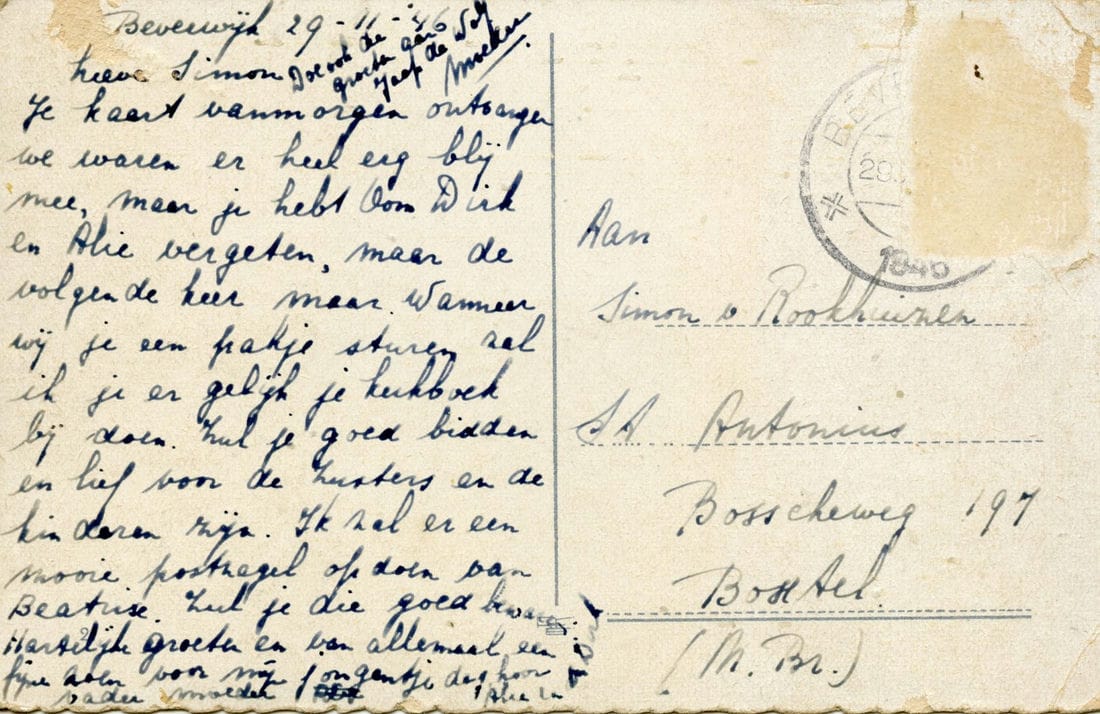 Beverwijk 29-11-'46
Lieve Simon
Doe ook de
groeten aan
Jaap de Wolf
Moeder.
Je kaart vanmorgen ontvangen
we waren er heel erg blij
mee, maar je hebt Oom Dirk
en Alie vergeten, maar de
volgende keer maar. Wanneer
wij je een pakje sturen zal
ik je er gelijk je kerkboek
bij doen. Zul je goed bidden
en lief voor de zusters en de
kinderen zijn. Ik zal er een
mooie postzegel op doen van
Beatrise. Zul je die goed bewaren
Hartelijke groeten en van allemaal een
fijne zoen voor mijn jongentje dag hoor
vader moeder Alie en
Dirk
BEVE
29.
1946
Aan
Simon v Rookhuizen
St Antonius
Bosscheweg 197
Boxtel.
(N. Br.)